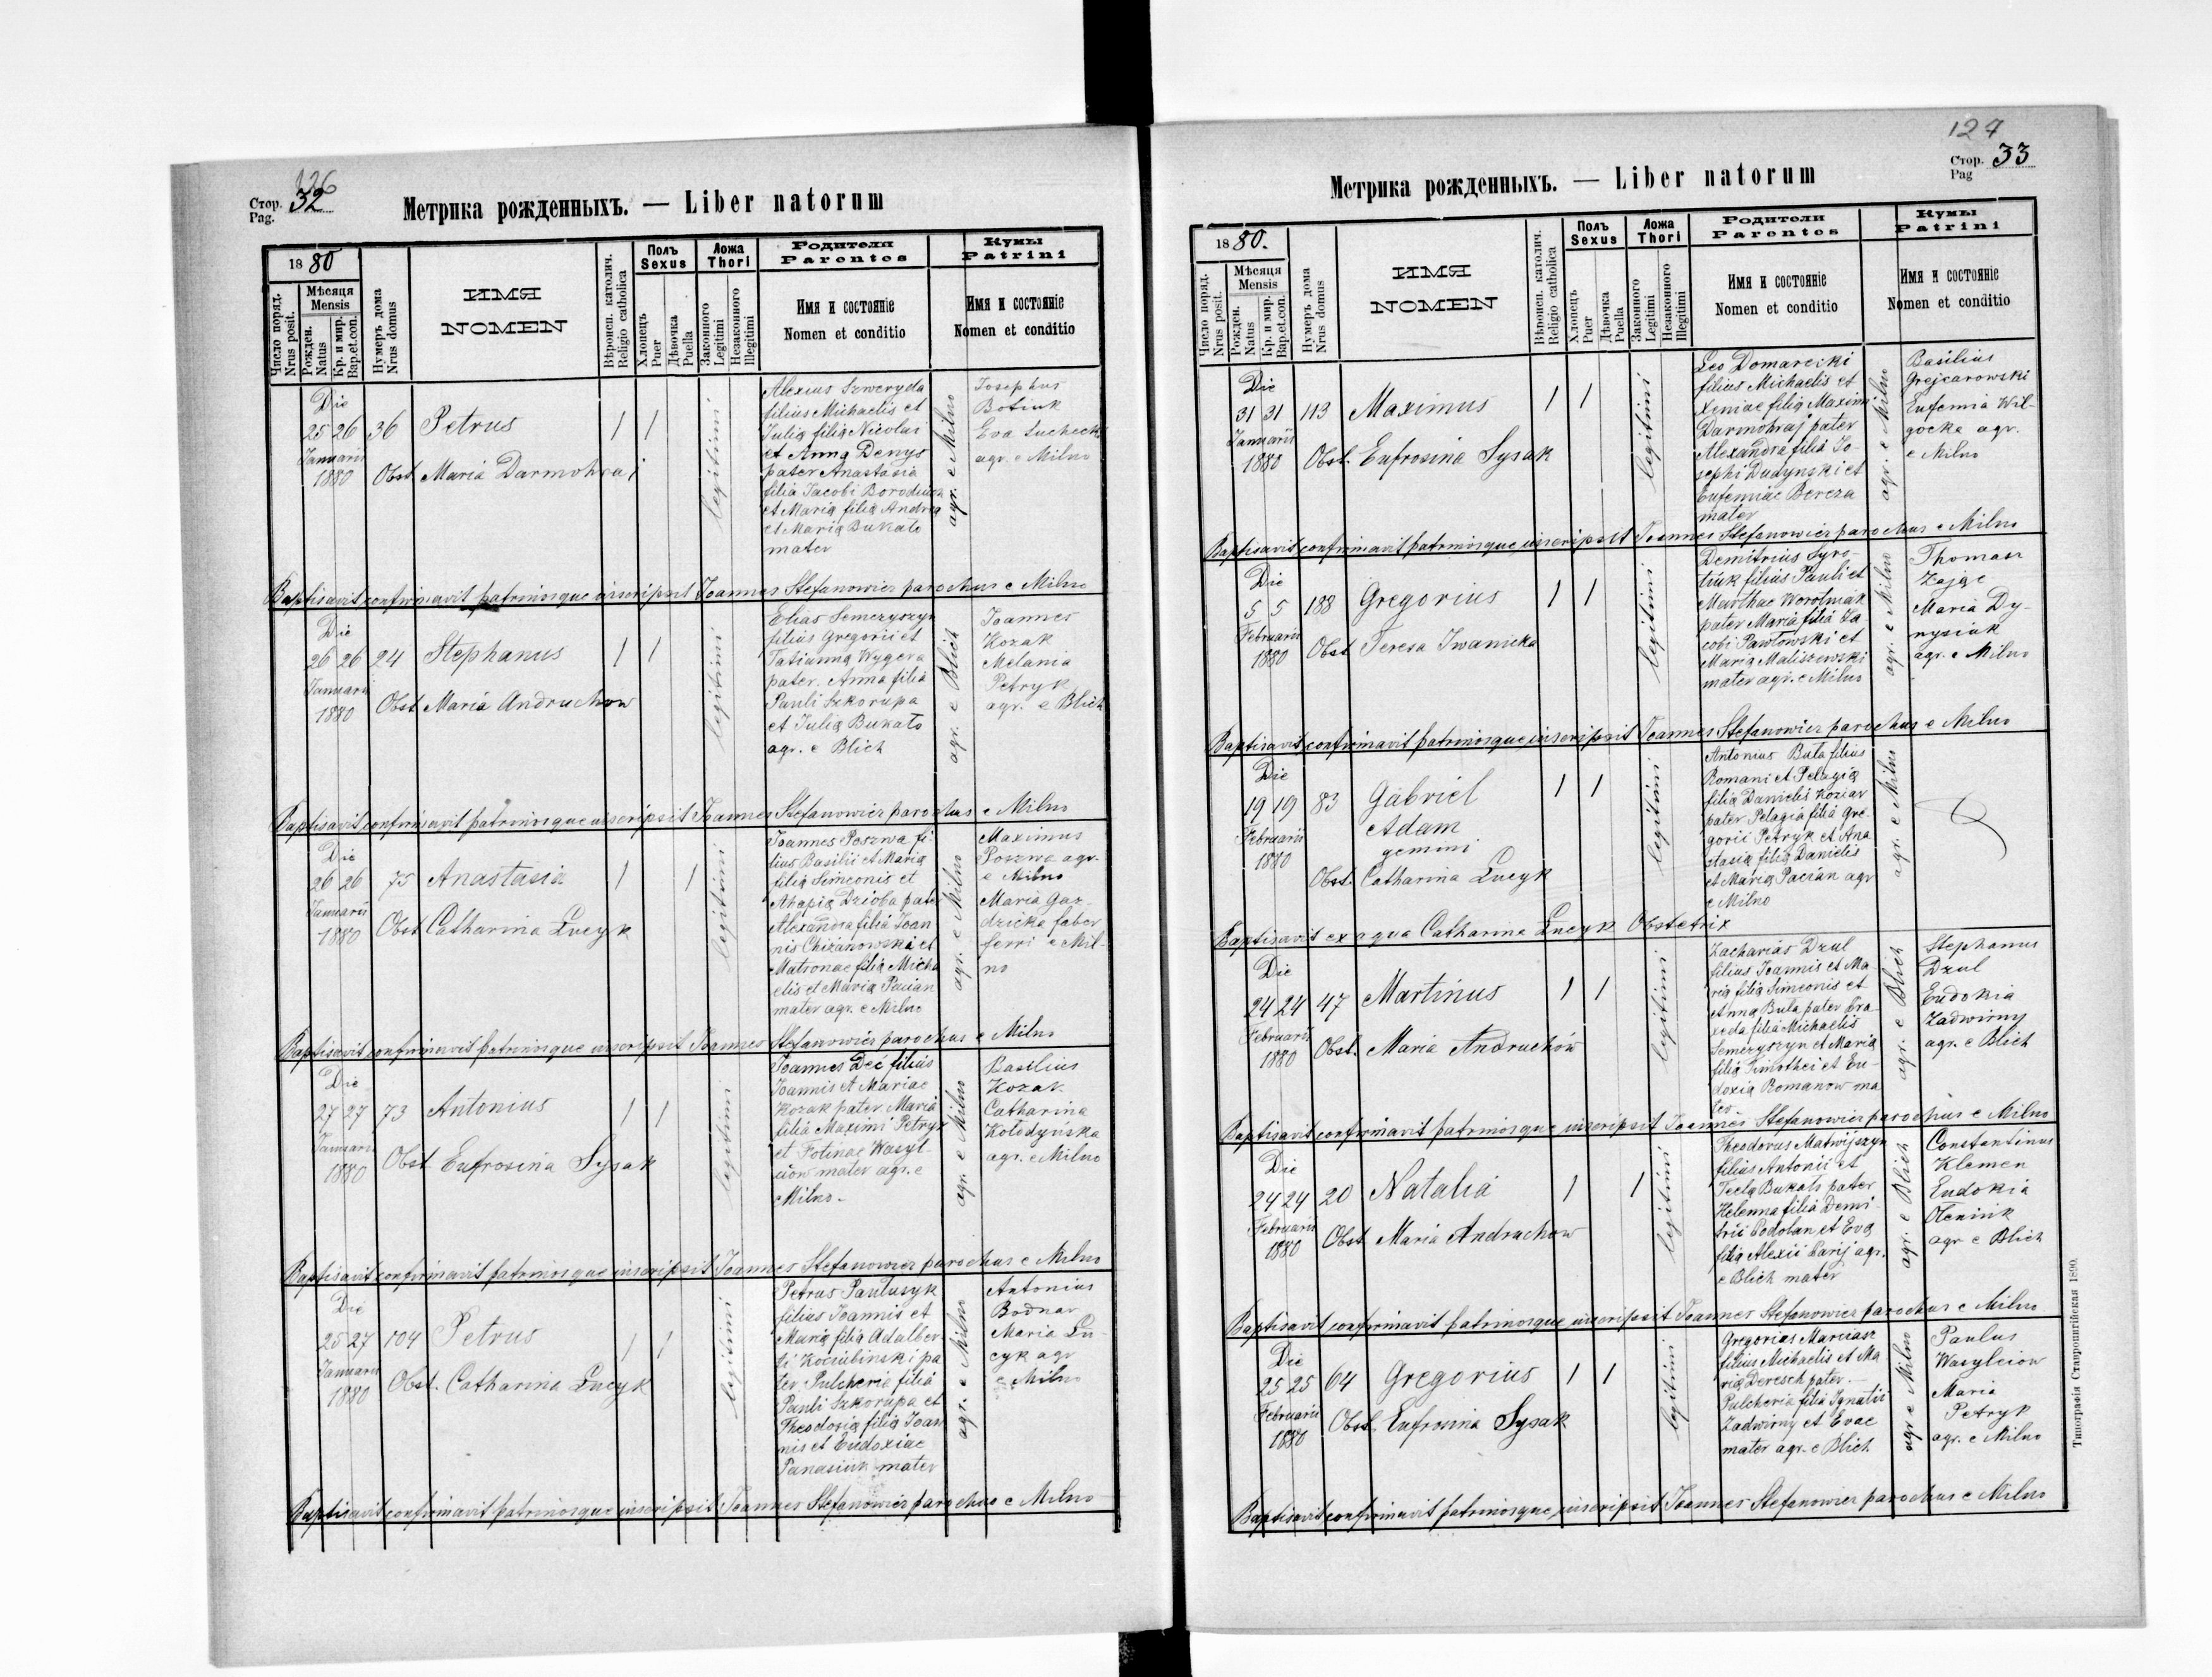 126
Стор. 32
Pag.
Метрика рожденныхъ. — Liber natorum
1880
Число поряд.
Nrus posit.
Мѣсяця
Mensis
Рожден.
Natus
Кр. и мир.
Bap.et.con.
Нумеръ дома
Nrus domus
ИМЯ
NOMEN
Вѣроисп. католич.
Religio catholica
Полъ
Sexus
Хлопецъ
Puer
Дѣвочка
Puella
Ложа
Thori
Законного
Legitimi
Незаконного
Illegitimi
Родители
Parentes
Имя и состояніе
Nomen et conditio
Кумы
Patrini
Имя и состояніе
Nomen et conditio
Die
25 26 36 Petrus 1 1
Januarii
1880 Obst Maria Darmohraj
legitimi
Alexius Szweryda
filius Michaelis et
Julia filia Nicolai
et Anna Denys
pater Anastasia
filia Jacobi Borodiuch
et Maria filia Andrea
et Maria Bukało
mater
agr. e Milno
Josephus
Botiuk
Eva Suchecka
agr. e Milno
Baptisavit confirmavit patrinosque inscripsit Joannes Stefanowicz parochus e Milno
Die
26 26 24 Stephanus 1 1
Januarii
1880 Obst Maria Andruchow
legitimi
Elias Semczyszyn
filius Gregorii et
Tatianna Wygera
pater. Anna filia
Pauli Szkorupa
et Julia Bukało
agr. e Blich
agr. e Blich
Joannes
Kozak
Melania
Petryk
agr. e Blich
Baptisavit confirmavit patrinosque inscripsit Joannes Stefanowicz parochus e Milno
Die
26 26 75 Anastasia 1 1
Januarii
1880 Obst Catharina Łucyk
legitimi
Joannes Poszwa fi-
lius Basilii et Maria
filia Simeonis et
Ahapia Dzioba pater
Alexandra filia Joan
nis Chizanowski et
Matronae filia Micha
elis et Maria Pacian
mater agr. e Milno
agr. e Milno
Maximus
Poszwa agr.
e Milno
Maria Gaz-
dzicka faber
ferri e Mil-
no
Baptisavit confirmavit patrinosque inscripsit Joannes Stefanowicz parochus e Milno
Die
27 27 73 Antonius 1 1
Januarii
1880 Obst Eufrosina Sysak
legitimi
Joannes Deć filius
Joannis et Mariae
Kozak pater Maria
filia Maximi Petryk
et Fotinae Wasyl-
ciow mater agr. e
Milno.
agr. e Milno
Basilius
Kozak
Catharina
Kołodyńska
agr. e Milno
Baptisavit confirmavit patrinosque inscripsit Joannes Stefanowicz parochus e Milno
Die
25 27 104 Petrus 1 1
Januarii
1880 Obst. Catharina Łucyk
legitimi
Petrus Pawlusyk
filius Joannis et
Maria filia Adalber
ti Kociubinski pa
ter Pulcheria filia
Pauli Szkorupa et
Theodosia filia Joan
nis et Eudoxiae
Panasiuk mater
agr. e Milno
Antonius
Bodnar
Maria Łu-
cyk agr
e Milno
Baptisavit confirmavit patrinosque inscripsit Joannes Stefanowicz parochus e Milno
127
Стор. 33
Pag
Метрика рожденныхъ. — Liber natorum
1880.
Число поряд.
Nrus posit.
Мѣсяця
Mensis
Рожден.
Natus
Кр. и мир.
Bap.et.con.
Нумеръ дома
Nrus domus
ИМЯ
NOMEN
Вѣроисп. католич.
Religio catholica
Полъ
Sexus
Хлопецъ
Puer
Дѣвочка
Puella
Ложа
Thori
Законного
Legitimi
Незаконного
Illegitimi
Родители
Parentes
Имя и состояніе
Nomen et conditio
Кумы
Patrini
Имя и состояніе
Nomen et conditio
Die
31 31 113 Maximus 1 1
Januarii
1880 Obst. Eufrosina Sysak
legitimi
Leo Domarecki
filius Michaelis et
Xeniae filia Maximi
Darmohraj pater
Alexandra filia Jo-
sephi Dudynski et
Eufemiae Bereza
mater
agr. e Milno
Basilius
Grejcarowski
Eufemia Wil-
gocka agr.
e Milno
Baptisavit confirmavit patrinosque inscripsit Joannes Stefanowicz parochus e Milno
Die
5 5 188 Gregorius 1 1
Februarii
1880 Obst Teresa Iwanicka
legitimi
Demitrius Syro-
tiuk filius Pauli et
Marthae Worotniak
pater Maria filia Ja-
cobi Pawłowski et
Maria Maliszewski
mater agr. e Milno
agr. e Milno
Thomasz
Zając
Maria Dy-
nysiuk
agr. e Milno
Baptisavit confirmavit patrinosque inscripsit Joannes Stefanowicz parochus e Milno
Die
19 19 83 Gabriel 1 1
Adam
gemini
Februarii
1880
Obst. Catharina Łucyk
legitimi
Antonius Buła filius
Romani et Pelagia
filia Danielis Koziar
pater Pelagia filia Gre-
gorii Petryk et Ana
stasia filia Danielis
et Maria Pacian agr
e Milno
agr. e Milno
Baptisavit ex aqua Catharina Łucyk Obstetrix
Die
24 24 47 Martinus 1 1
Februarii
1880 Obst. Maria Andruchów
legitimi
Zacharias Dzul
filius Joannis et Ma-
ria filia Simeonis et
Anna Buła pater Pra-
xeda filia Michaelis
Semczyszyn et Maria
filia Timothei et Eu-
doxia Romanow ma
ter.
agr. e Blich
Stephanus
Dzul
Eudokia
Zadwirny
agr. e Blich
Baptisavit confirmavit patrinosque inscripsit Joannes Stefanowicz parochus e Milno
Die
24 24 20 Natalia 1 1
Februarii
1880 Obst Maria Andrachow
legitimi
Theodorus Matwijszyn
filius Antonii et
Tecla Bukało pater
Helenna filia Demi-
trii Podolan et Eva
filia Alexii Parij agr.
e Blich mater
agr. e Blich
Constantinus
Klemen
Eudokia
Olenink
agr e Blich
Baptisavit confirmavit patrinosque inscripsit Joannes Stefanowicz parochus e Milno
Die
25 25 64 Gregorius 1 1
Februarii
1880 Obst. Eufrosina Sysak
legitimi
Gregorius Marciasz
filius Michaelis et Ma
ria Deresch pater.
Pulcheria filia Ignatii
Zadwirny et Evae
mater agr. e Blich
agr e Milno
Paulus
Wasylciow
Maria
Petryk
agr. e Milno
Baptisavit confirmavit patrinosque inscripsit Joannes Stefanowicz parochus e Milno
Типографія Ставропигійская 1890.